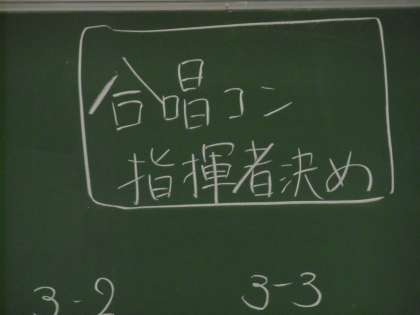 合唱コン
指揮者決め
3-2 3-3